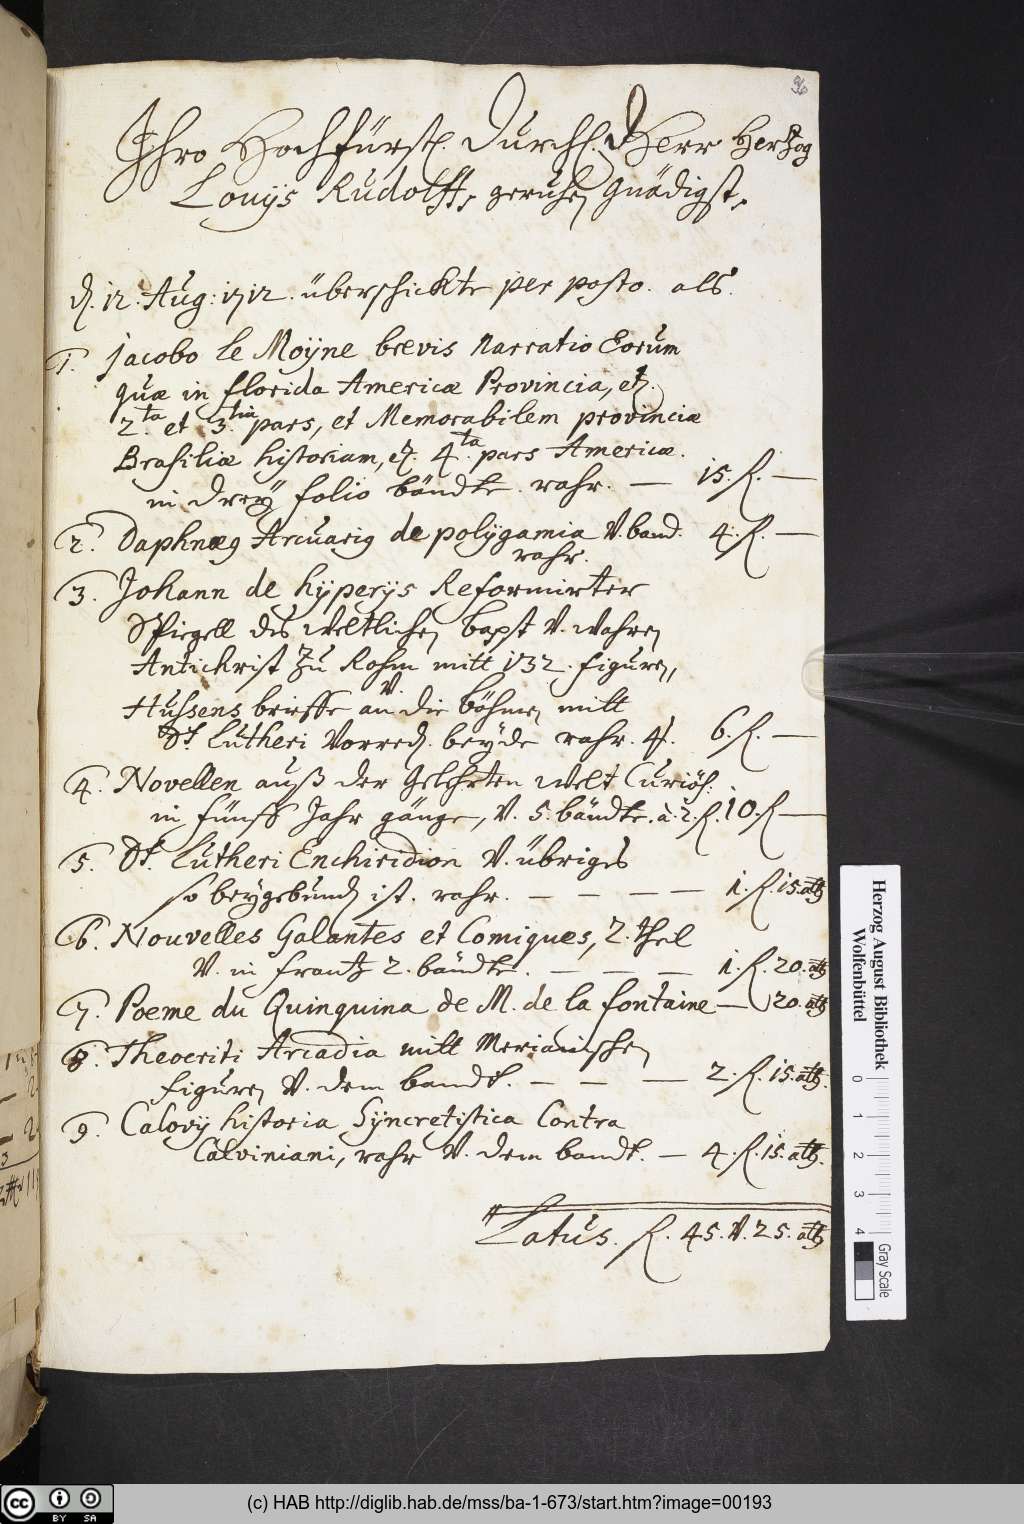 96
Ihro Hochfürstl. Durchl. Herr Hertzog
Louijs Rudolff, geruhen Gnädigst,
d. 12. Aug: 1712. überschickte per posto. als.
1. Jacobo le Moijne brevis Narratio Eorum
quæ in florida Americæ Provincia, etc.
2.ta et 3.tia pars, et Memorabilem provinciæ
Brasiliæ historiam, etc. 4.ta pars Americæ.
in dreij folio bändte. rahr. — 15. fl. —
2. Daphnæg Arcuarig de polijgamia v. band. 4. fl. —
rahr.
3. Johann de hijperijs Reformirter
Spiegell des weltlichen bapst v. wahren
Antichrist Zu Rohm mitt 132. figuren,
v.
Hussens brieffe an die böhmen mitt
Dr. Lutheri Vorred. beyde rahr. 4. 6. fl. —
4. Novellen auß der gelehrten welt Curiös.
in fünff Jahr gänge, v. 5. bändte. à 2. fl. 10. fl —
5. Dr. Lutheri Enchiridion v. übriges
so beygebund ist. rahr. — — — — 1. fl. 15. alb
6. Nouvelles Galantes et Comiques, 2. thel
v. in frantz 2. bändte. — — — 1. fl. 20. alb
7. Poeme du Quinquina de M. de la fontaine — 20. alb
8. Theocriti Arcadia mitt Merianischen
figuren v. dem bandt. — — — 2. fl. 15. alb.
9. Calovij historia Sijncretistica Contra
Calviniani, rahr v. dem bandt. — 4. fl. 15. alb.
Latus. fl. 45. v. 25. alb
Herzog August Bibliothek
Wolfenbüttel
0 1 2 3 4
Gray Scale
cc BY SA
(c) HAB http://diglib.hab.de/mss/ba-1-673/start.htm?image=00193